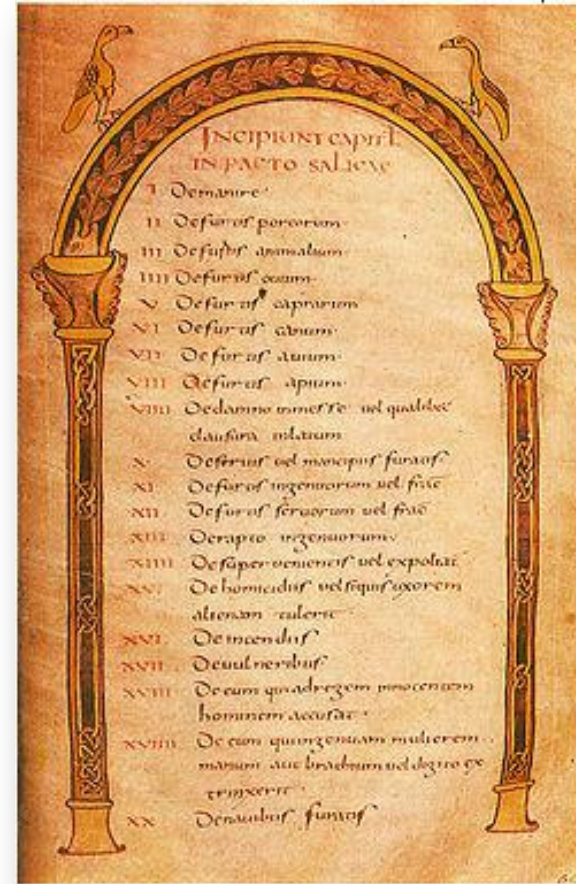 INCIPIUNT CAPITL
IN PACTO SALICAE
I De manire
II De furtis porcorum
III De furtis animalium
IIII De furtis ouium
V De furtis caprarum
VI De furtis canum
VII De furtis auium
VIII De furtis apium
VIIII De damno in messe uel qualibet
clausura inlatum
X De seruis uel mancipiis furatis
XI De furtis ingenuorum uel frac
XII De furtis seruorum uel frac
XIII De rapto ingenuorum
XIIII De superuenientis uel expoliat
XV De homicidiis uel siquis uxorem
alienam tulerit
XVI De incendiis
XVII De uulneribus
XVIII De eum qui ad regem innocentem
hominem accusat
XVIIII De eum qui ingenuam mulierem
manum aut brachium uel digito ex
trinxerit
XX De nauibus furatis